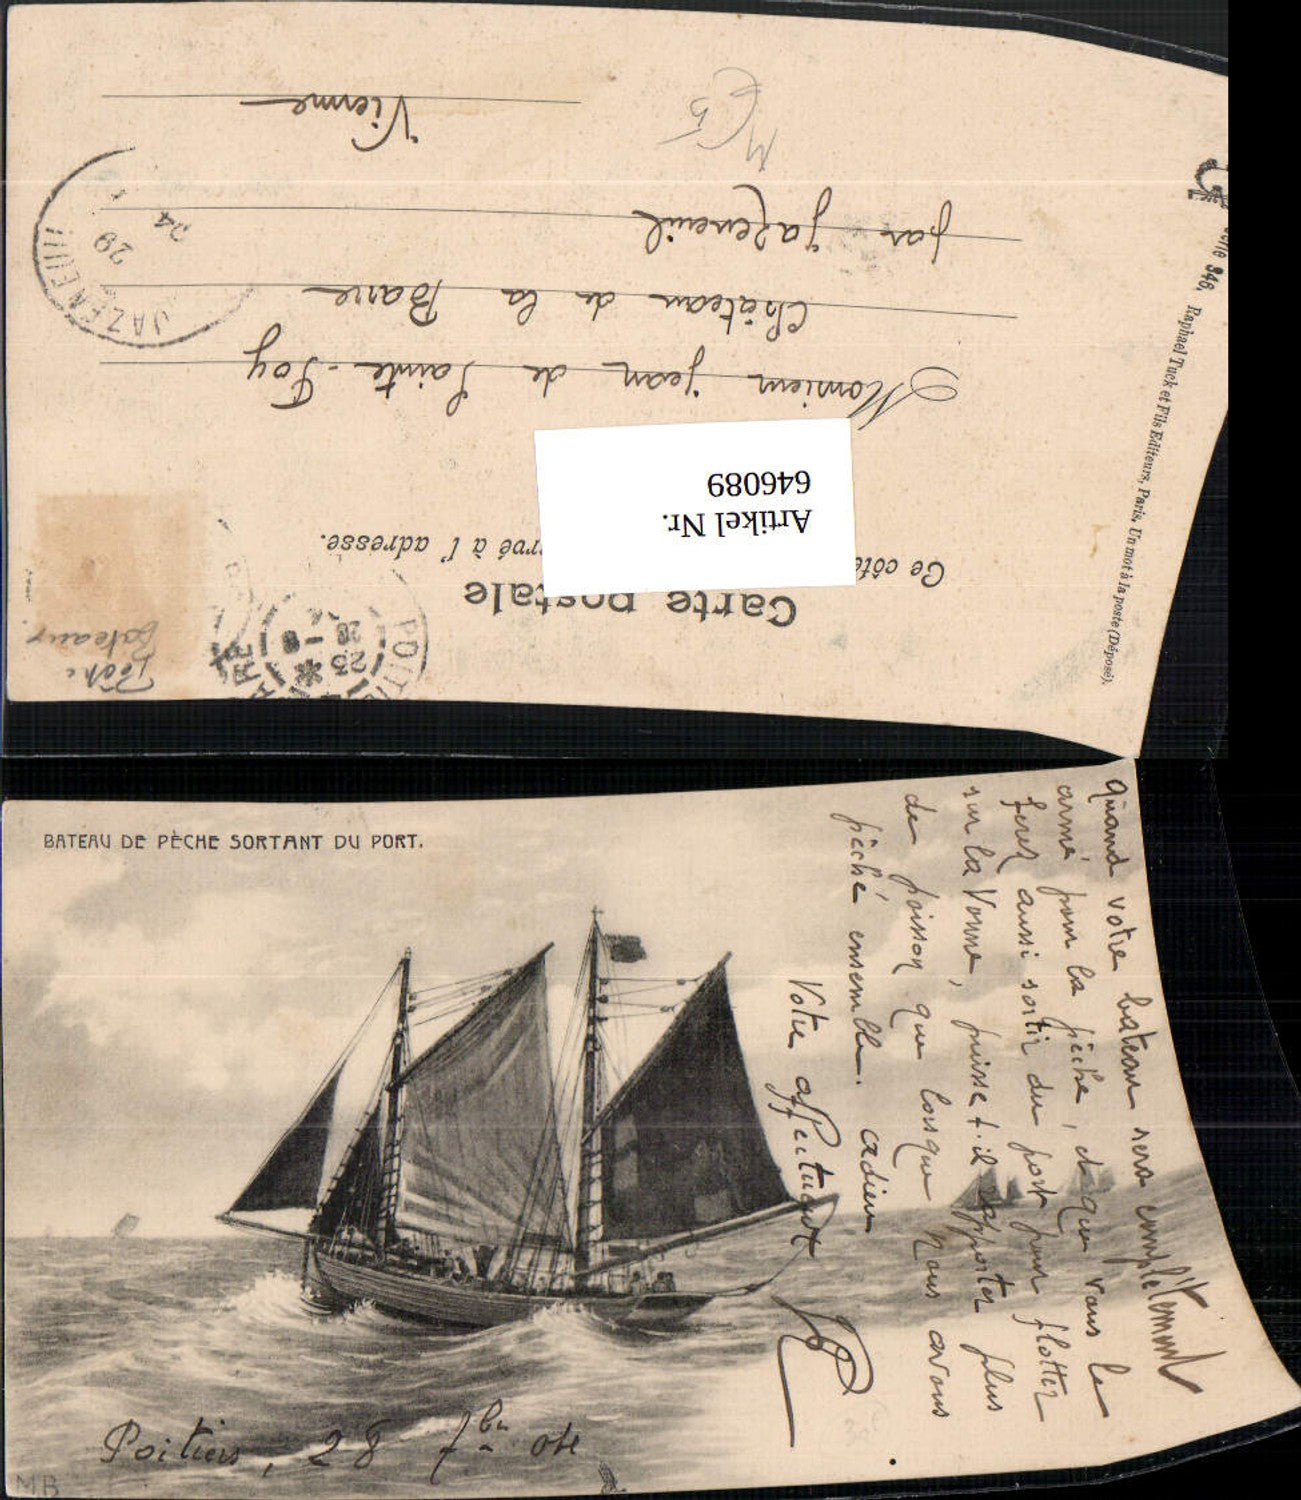 Carte postale
Ce côté réservé à l'adresse.
Artikel Nr.
646089
Monsieur Jean de Sainte-Foy
Château de la Barre
par Jazeneuil
Vienne
JAZENEUIL
29
04
POITIERS
23
28 - 9
Pêche
Bateaux.
346. Raphael Tuck et Fils Editeurs, Paris. Un mot à la poste (Déposé).
BATEAU DE PÈCHE SORTANT DU PORT.
Quand votre bateau sera complètement
armé pour la pêche, et que vous le
ferez aussi sortir du port pour flotter
sur la Vonne, puisse t-il rapporter plus
de poisson que lorsque nous avons
pêché ensemble. Adieu
Votre affectueux
Poitiers, 28 7bre 04
MB